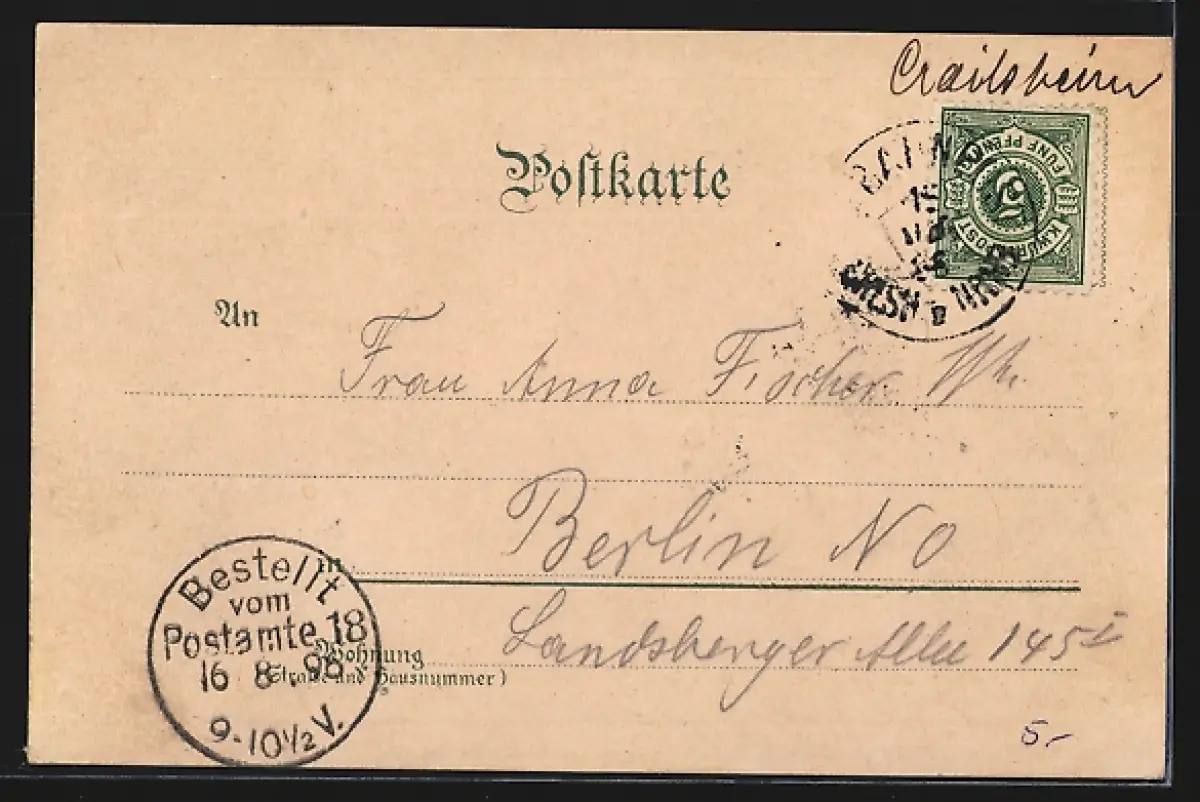 Crailsheim
Postkarte
FÜNF PFENNIG
5
K.WÜRT. POST
15
An
Frau Anna Fischer
in Berlin NO
Wohnung Landsberger Allee 145 I
(Straße und Hausnummer)
Bestellt
vom
Postamte 18
16 8 98
9-10½ V.
5.-